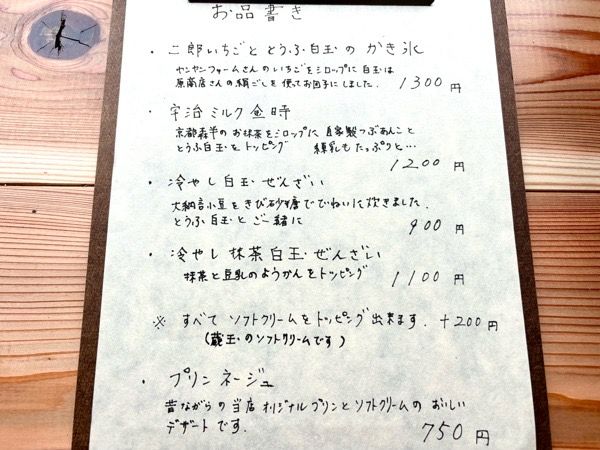 お品書き
・二郎いちごと とうふ白玉の かき氷
ヤンヤンファームさんのいちごをシロップに 白玉は
原商店さんの絹ごしを使ってお団子にしました. 1300円
・宇治ミルク金時
京都森半のお抹茶をシロップに 自家製つぶあんこと
とうふ白玉をトッピング 練乳もたっぷりと…
1200円
・冷やし白玉ぜんざい
大納言小豆をきび砂糖でていねいに炊きました.
とうふ白玉とご一緒に 900円
・冷やし抹茶白玉ぜんざい
抹茶と豆乳のようかんをトッピング 1100円
※ すべてソフトクリームをトッピング出来ます. +200円
(蔵王のソフトクリームです)
・プリンネージュ
昔ながらの当店オリジナルプリンとソフトクリームのおいしい
デザートです. 750円